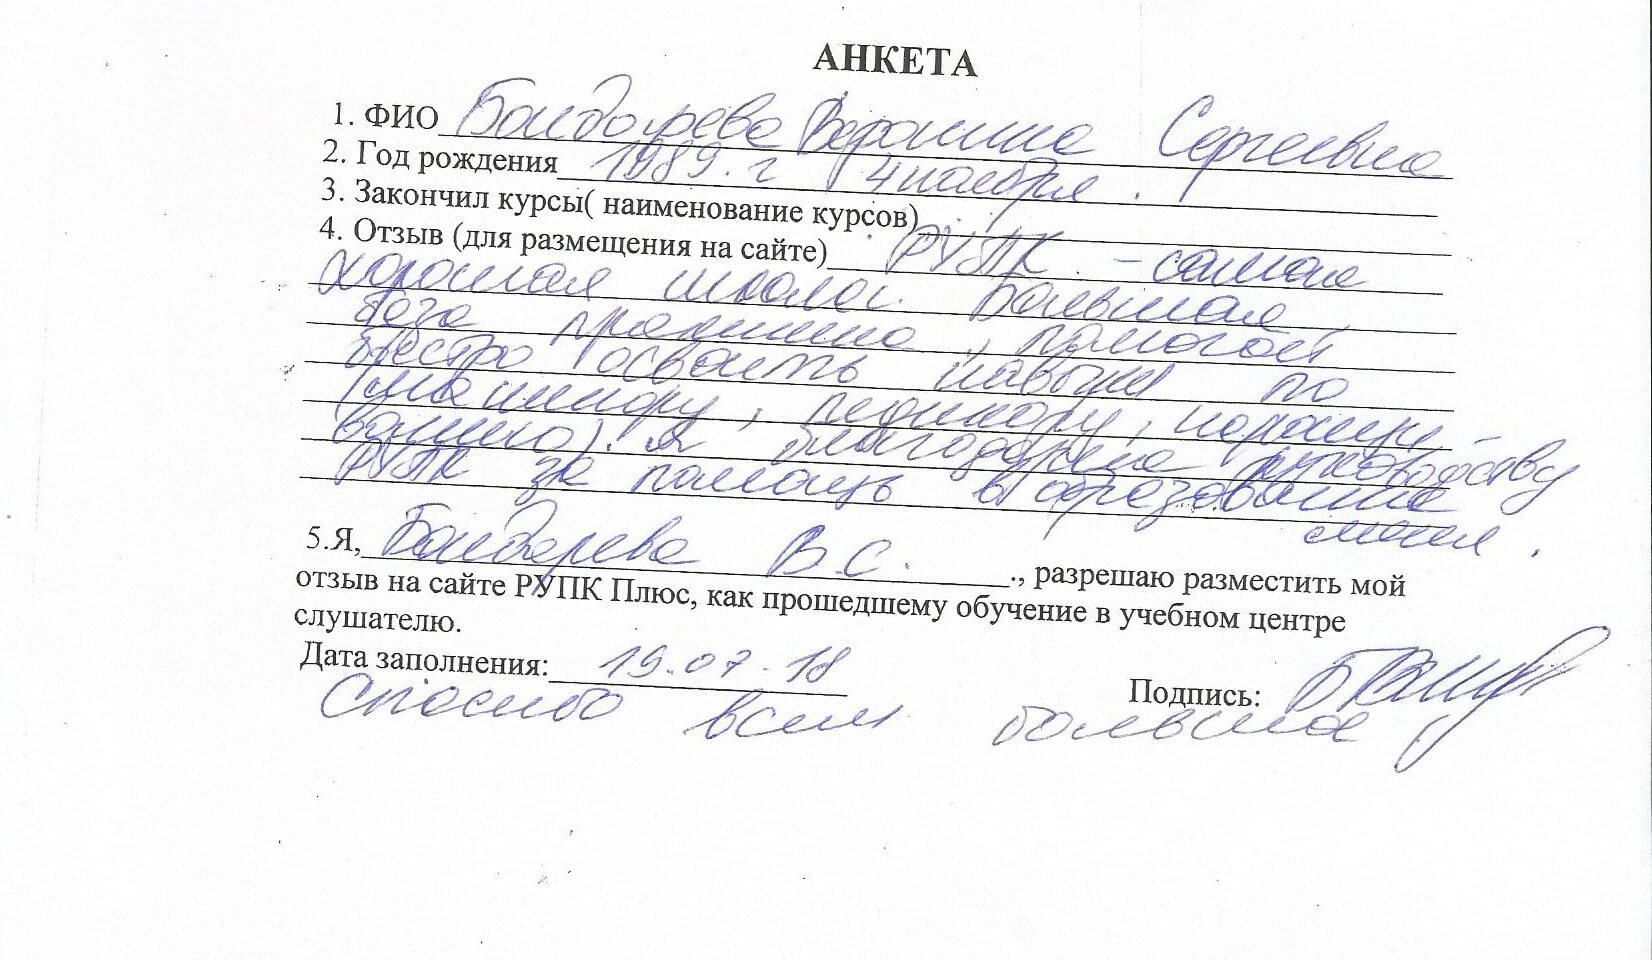 АНКЕТА
1. ФИО Бондарева Вероника Сергеевна
2. Год рождения 1989.г 4 ноября.
3. Закончил курсы( наименование курсов)
4. Отзыв (для размещения на сайте) РУПК - самая
хорошая школа. Большая
база практики, помогает
быстро освоить навыки по
(маникюру, педикюру, наращи-
ванию). Я благодарна руководству
РУПК за помощь в образование
меня.
5.Я, Бондарева В.С. ., разрешаю разместить мой
отзыв на сайте РУПК Плюс, как прошедшему обучение в учебном центре
слушателю.
Дата заполнения: 19.07.18
Подпись:
Спасибо всем большое